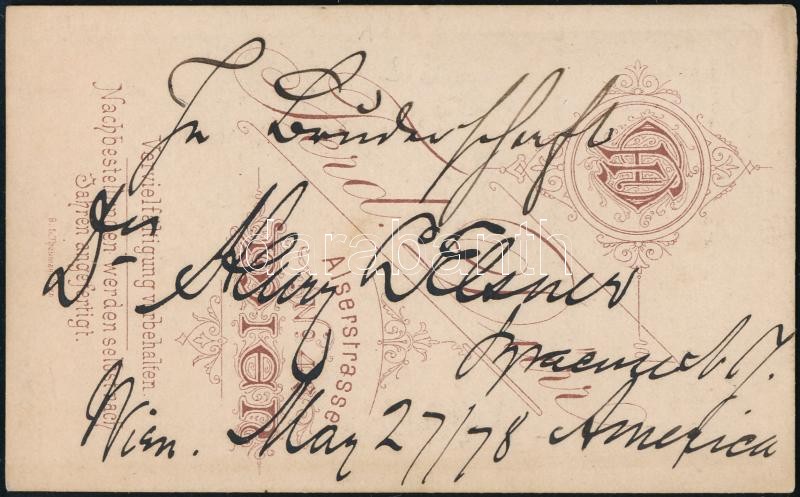 In Bruderschaft
Dr. Henry L. Elsner
Syracuse N.Y.
Wien. May 27/78 America
Alserstrasse
WIEN
Vervielfältigung vorbehalten
Nachbestellungen werden selbst nach
Jahren angefertigt.
darabanth